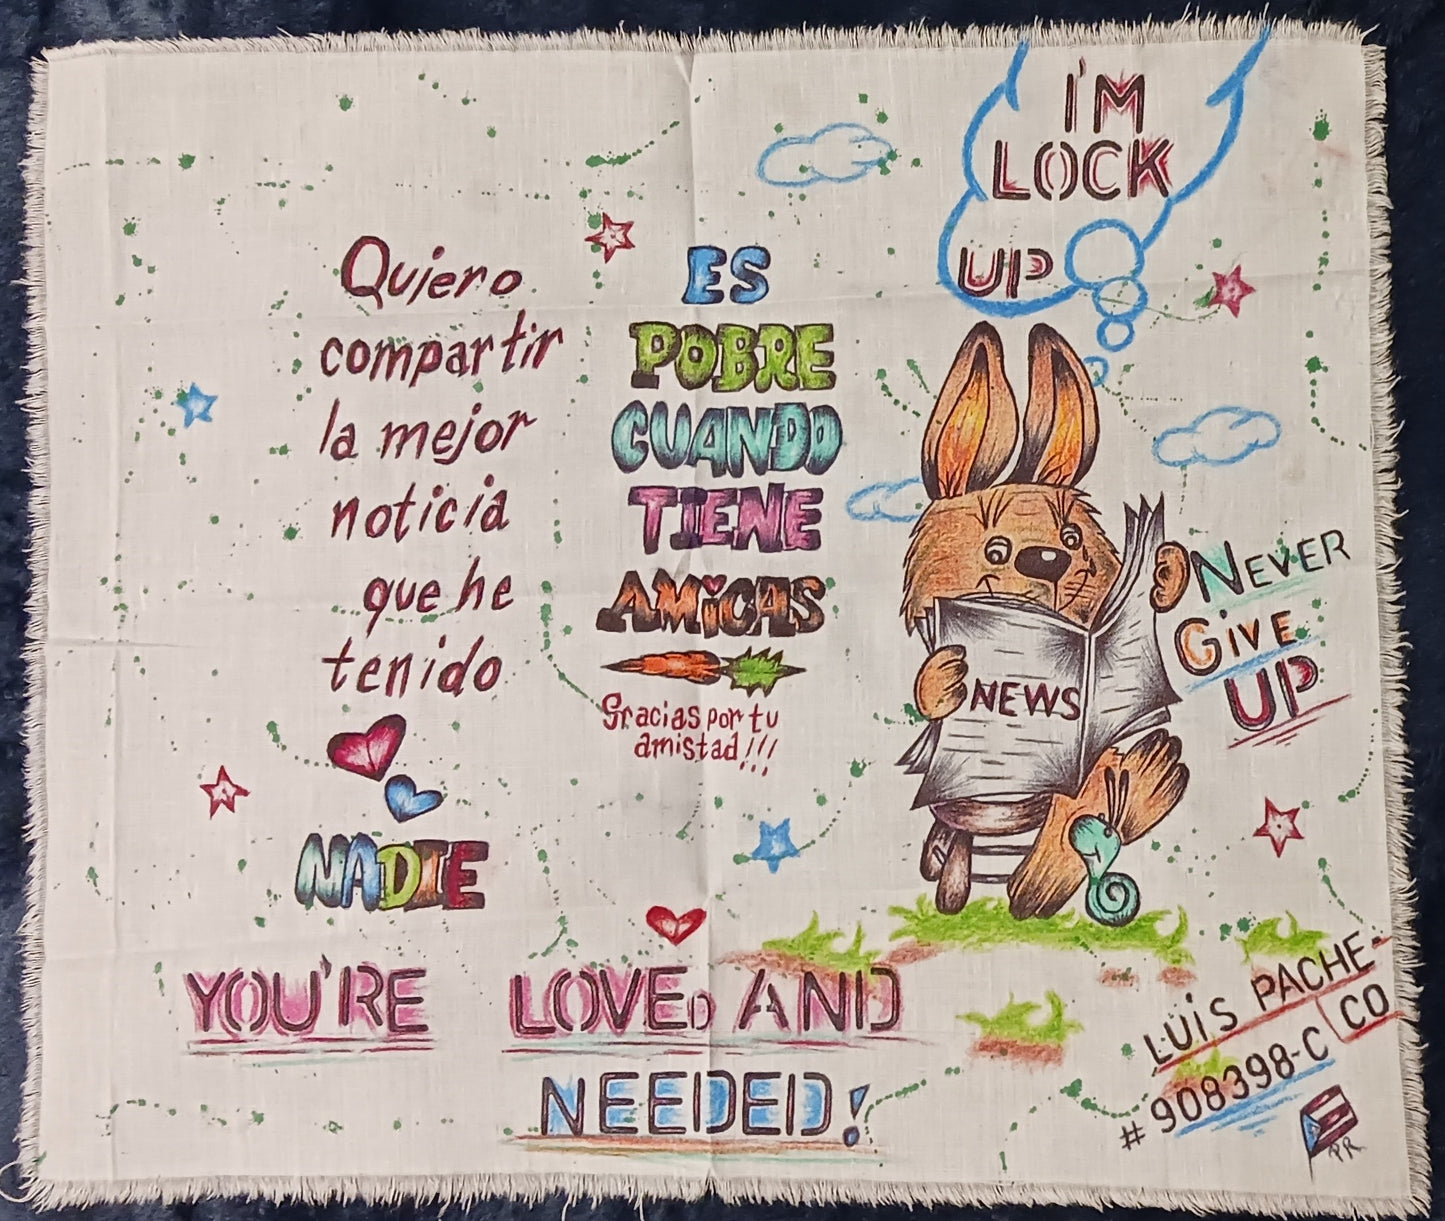 I'M
LOCK
UP
Quiero
compartir
la mejor
noticia
que he
tenido
NADIE
ES
POBRE
CUANDO
TIENE
AMiGAS
Gracias por tu
amistad!!!
NEWS
NEVER
GiVE
UP
YOU'RE LOVED AND
NEEDED!
LUiS PACHE-
CO
# 908398-C
PR